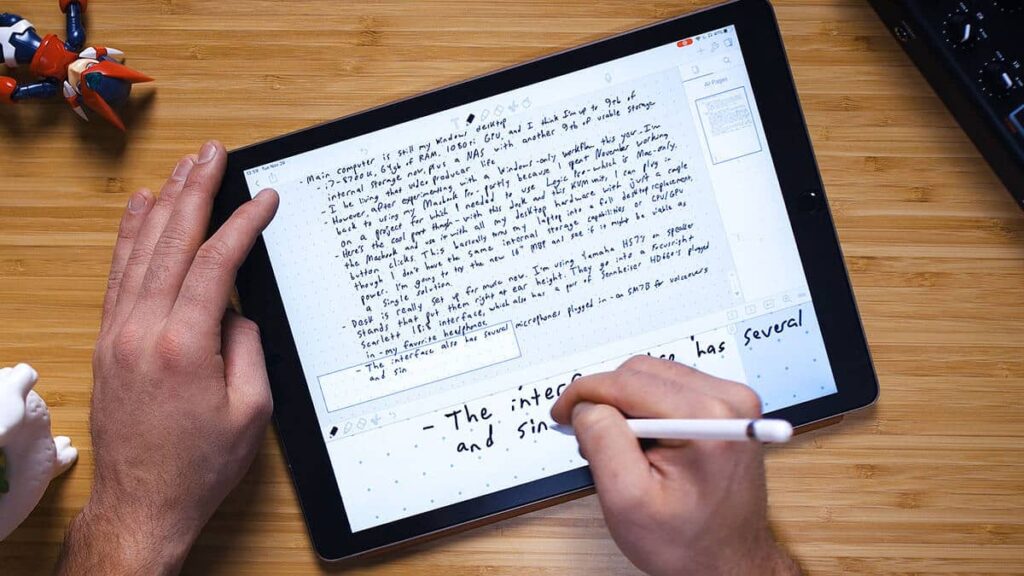 Tue Nov 26
All Pages
- Main computer is still my windows desktop
- i7-8700k, 64gb of RAM, 1080ti GPU, and I think I'm up to 9tb of
internal storage now, plus a NAS with another 9tb of usable storage
- I be living that video producer life
- However, after experimenting with a Windows-only workflow this year, I'm
back to using my Macbook Pro, partly because I spent November working
on a project for which I needed to use Logic Pro which is Mac only.
- Here's the cool part though - with this dock and KVM switch, I can plug in
the Macbook and use it with all my desktop hardware with just a couple
button clicks. This basically my laptop into a full desktop replacement,
though I don't have the same internal storage capabilities or CPU/GPU
power. I'm going to try the new 16" MBP and see if it might be viable as
a single solution.
- Desk is really set up for music now. I'm using Yamaha HS7s on speaker
stands that put them right at ear height. They go into a Focusright
Scarlett 18i8 interface, which also has a pair of Sennheiser HD660s plugged
in - my favorite headphone
- The interface also has several microphones plugged in - an SM7B for voiceovers
and sin
- The inter has several
and sin